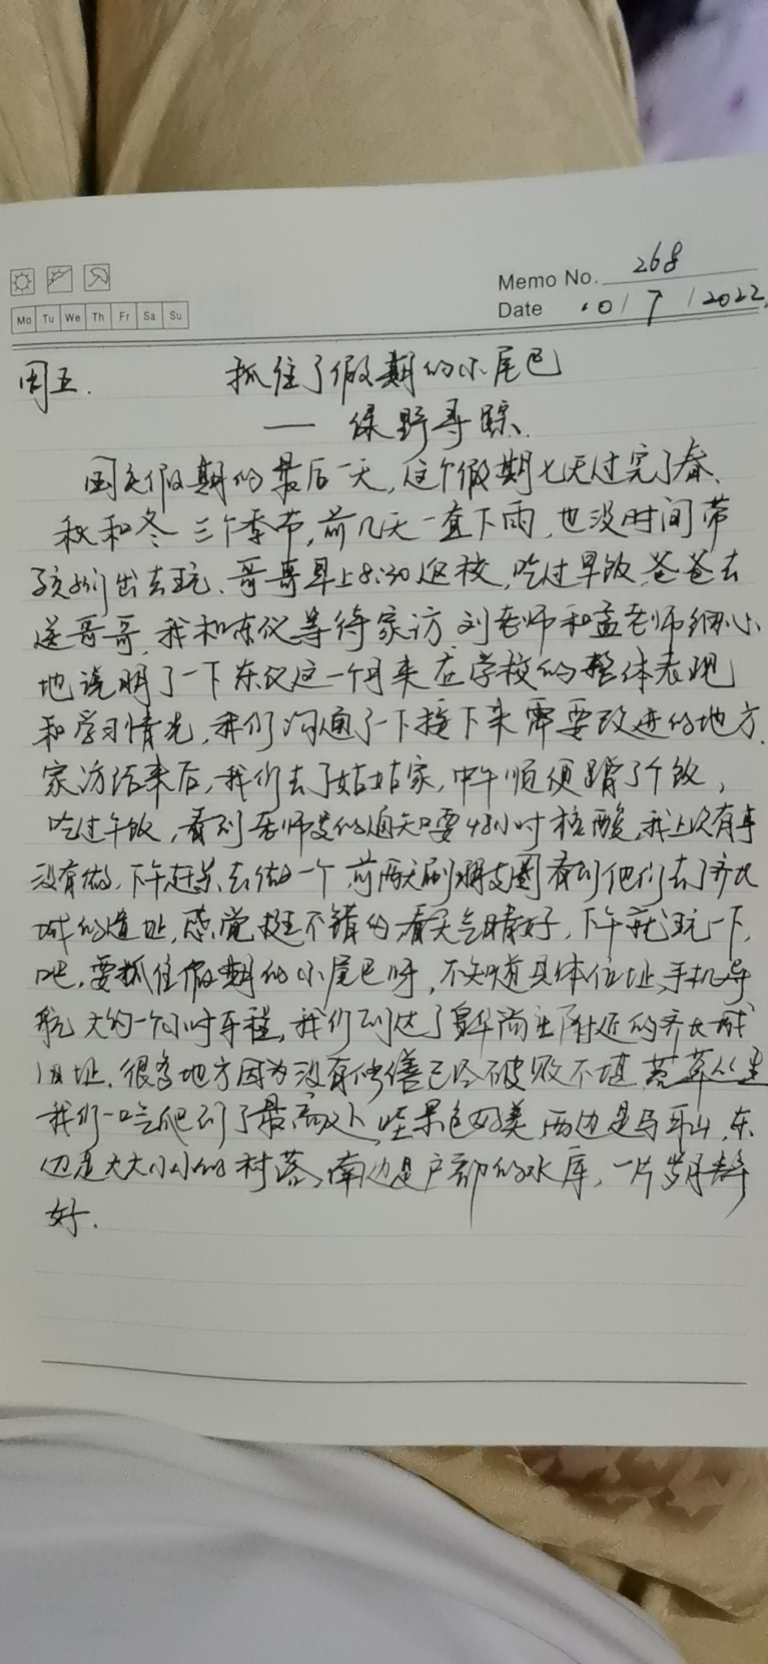 Memo No. 268
Mo Tu We Th Fr Sa Su
Date 10/7/2022
周五. 抓住了假期的小尾巴
—— 绿野寻踪.
国庆假期的最后一天,这个假期七天过完了春、
秋和冬三个季节,前几天一直下雨,也没时间带
孩子们出去玩、哥哥早上8:30返校,吃过早饭,爸爸去
送哥哥,我和东仪等待家访.刘老师和孟老师细心
地说明了一下东仪这一个月来在学校的整体表现
和学习情况,我们沟通了一下接下来需要改进的地方.
家访结束后,我们去了姑姑家,中午顺便蹭了个饭,
吃过午饭,看到老师发的通知要48小时核酸,我上次有事
没有做,下午赶紧去做一个.前两天刷朋友圈看到他们去了齐长
城的遗址,感觉挺不错的.看天气晴好,下午就玩一下,
吧,要抓住假期的小尾巴呀,不知道具体位址,手机导
航大约一个小时车程,我们到达了 附近的齐长城
旧址.很多地方因为没有修缮已经破败不堪,荒草丛生
我们一口气爬到了最高处, 景色好美,西边是马耳山,东
边是大大小小的村落,南边是户部的水库,一片岁月静
好.